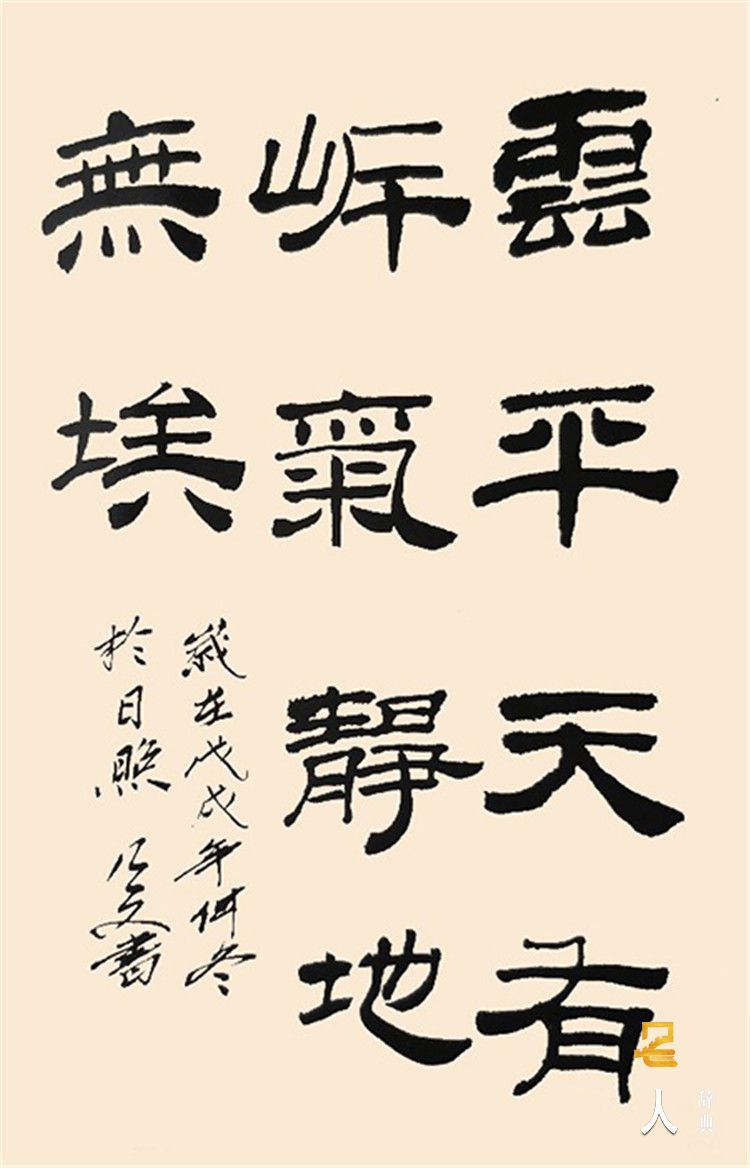 雲平天有
岸氣靜地
無埃
歲在戊戌年仲冬
於日照 文書
人
辞典